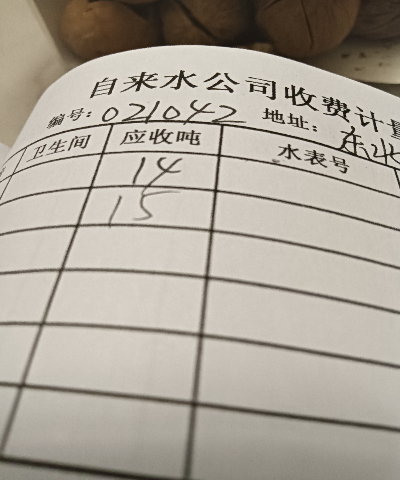 自来水公司收费计量
编号:021042 地址:
卫生间 应收吨 水表号
14
15